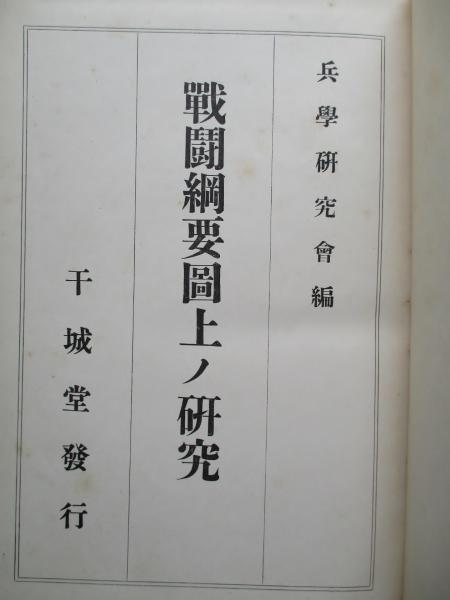 兵學硏究會編
戰鬪綱要圖上ノ硏究
干城堂發行